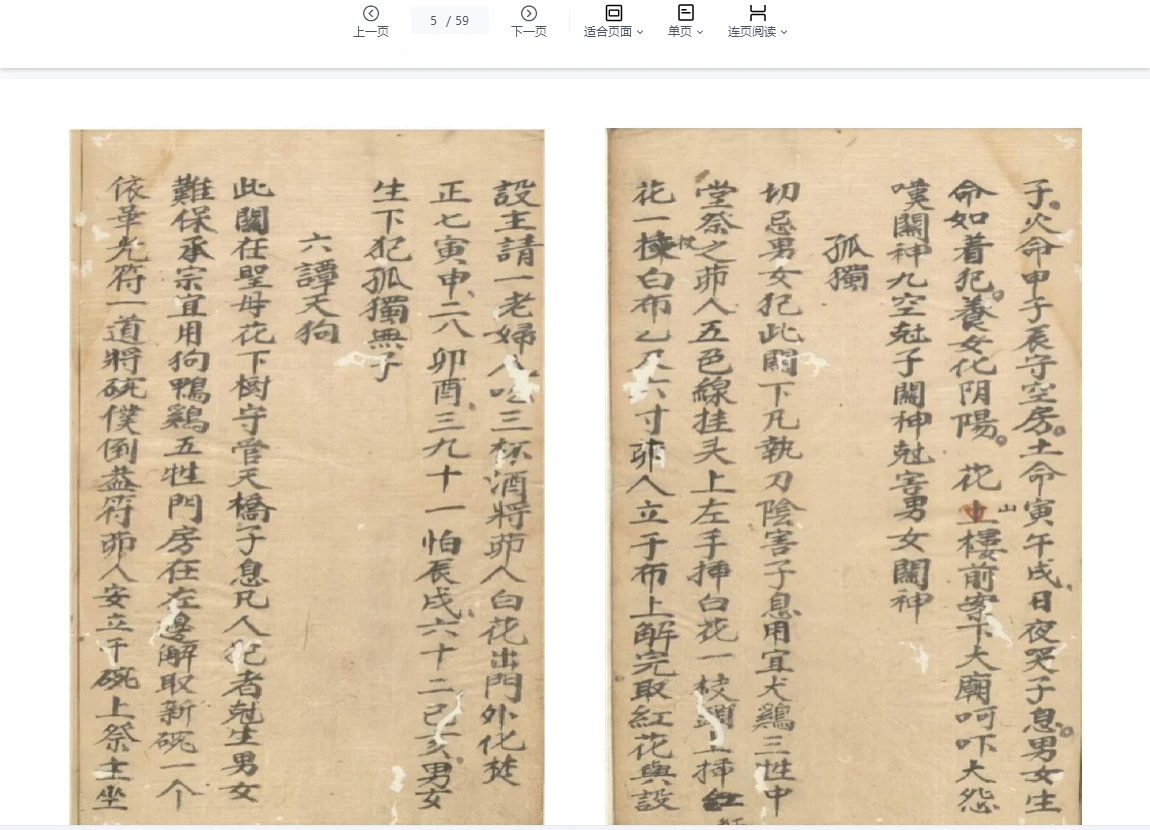 上一页
5 / 59
下一页
适合页面
单页
连页阅读
子火命申子辰守空房土命寅午戌日夜哭子息男女生
命如着犯養女化阴陽花山樓前案下大廟呵吓大怨
嘆關神九空尅子關神尅害男女關神
孤獨
切忌男女犯此關下凡執刀陰害子息用宜犬鷄三牲中
堂祭之茆人五色線挂头上左手揷白花一枝上揷紅
花一枝白布乙尺六寸茆人立于布上解完取紅花與設
設主請一老婦人吃三杯酒將茆人白花出門外化焚
正七寅申二八卯酉三九十一怕辰戌六十二己亥男女
生下犯孤獨無子
六譚天狗
此關在聖母花下樹守管天橋子息凡人犯者尅生男女
難保承宗宜用狗鴨鷄五牲門房在左邊解取新碗一个
依華光符一道將碗僕倒葢符茆人安立于碗上祭主坐